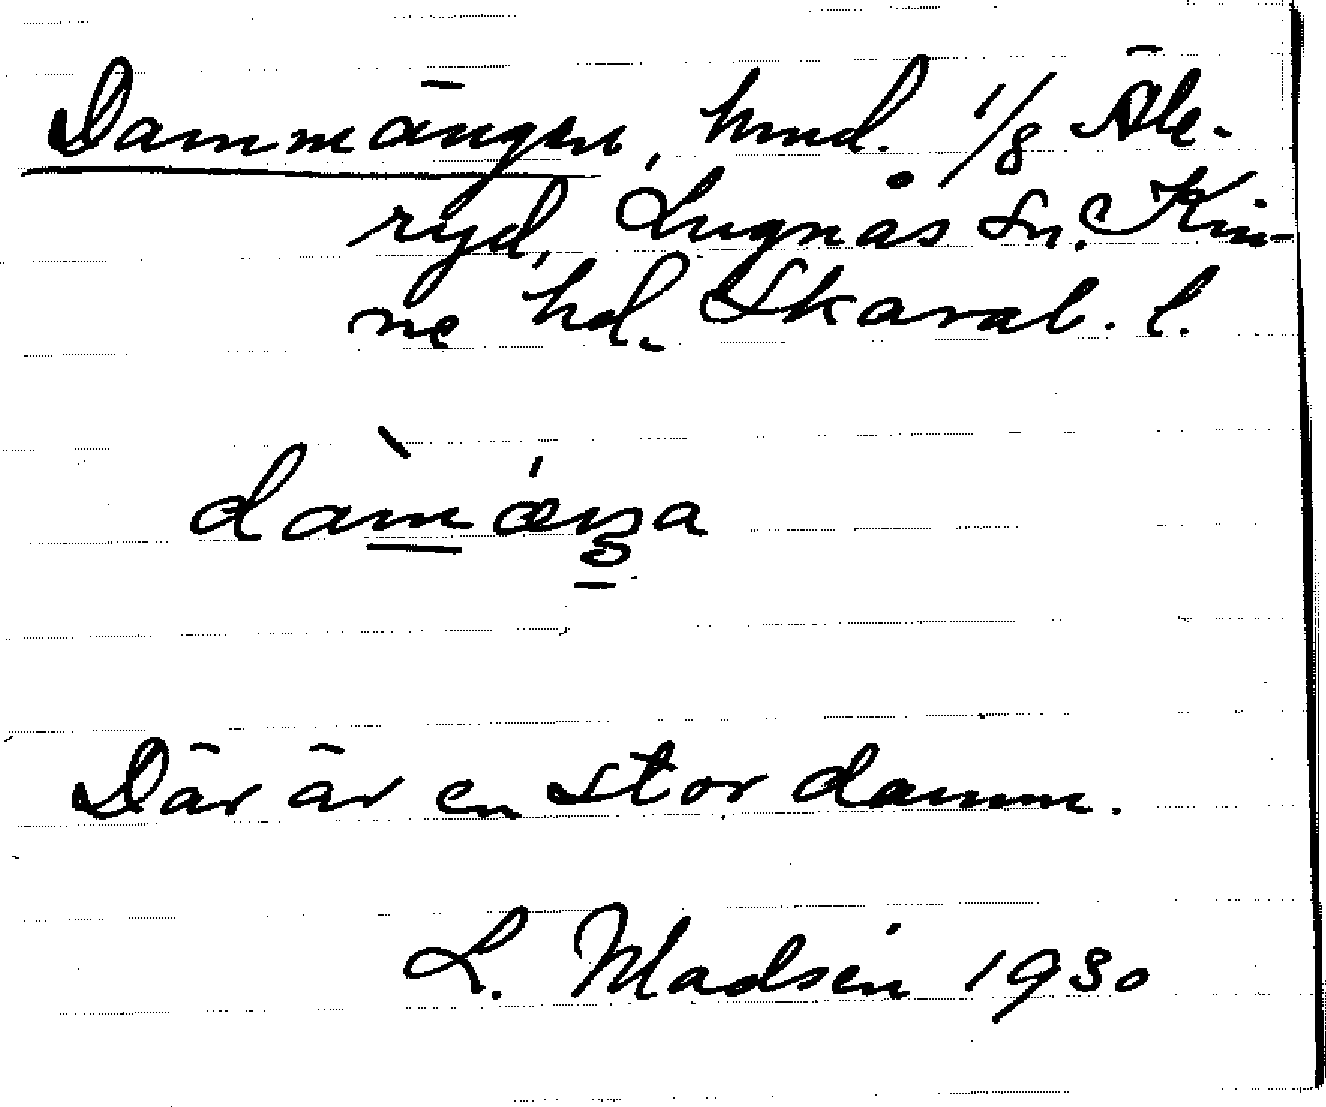 Dammängen, hmd. 1/8 Äle-
ryd, Lugnås sn. Kin-
ne hd. Skarab. l.
dàmǽŋa
Där är en stor damm.
L. Madsén 1930